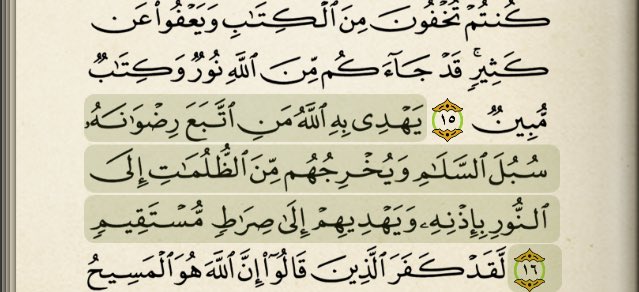 كُنتُمْ تُخْفُونَ مِنَ ٱلْكِتَٰبِ وَيَعْفُوا۟ عَن
كَثِيرٍۢ ۚ قَدْ جَآءَكُم مِّنَ ٱللَّهِ نُورٌۭ وَكِتَٰبٌۭ
مُّبِينٌۭ ١٥ يَهْدِى بِهِ ٱللَّهُ مَنِ ٱتَّبَعَ رِضْوَٰنَهُۥ
سُبُلَ ٱلسَّلَٰمِ وَيُخْرِجُهُم مِّنَ ٱلظُّلُمَٰتِ إِلَى
ٱلنُّورِ بِإِذْنِهِۦ وَيَهْدِيهِمْ إِلَىٰ صِرَٰطٍۢ مُّسْتَقِيمٍۢ
١٦ لَّقَدْ كَفَرَ ٱلَّذِينَ قَالُوٓا۟ إِنَّ ٱللَّهَ هُوَ ٱلْمَسِيحُ